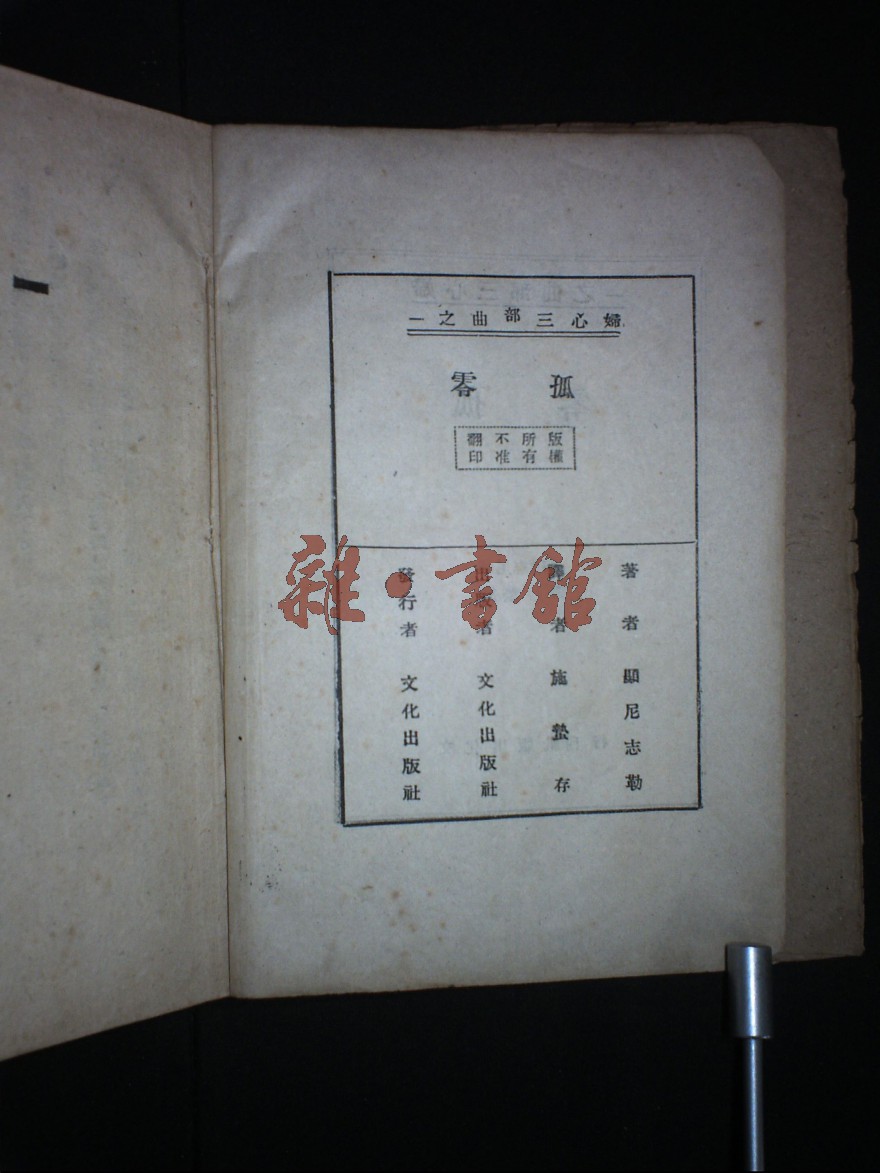 婦心三部曲之一
孤零
版權
所有
不准
翻印
著者 顯尼志勒
譯者 施蟄存
出版者 文化出版社
發行者 文化出版社
雜·書館